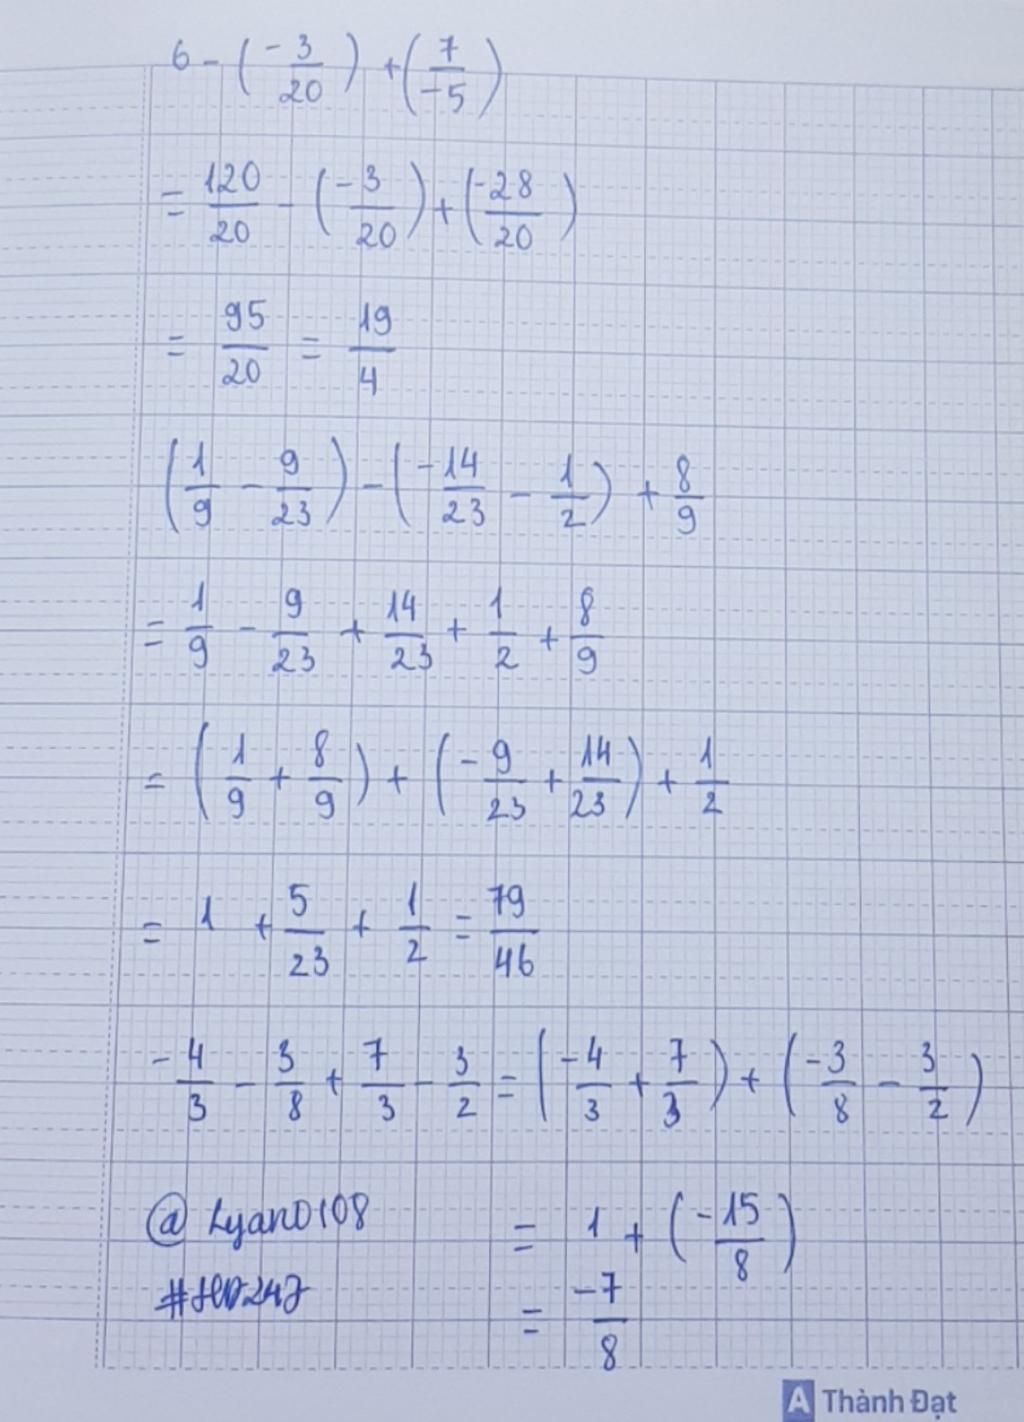 6 - (-3/20) + (7/-5)
= 120/20 - (-3/20) + (-28/20)
= 95/20 = 19/4
(1/9 - 9/23) - (-14/23 - 1/2) + 8/9
= 1/9 - 9/23 + 14/23 + 1/2 + 8/9
= (1/9 + 8/9) + (-9/23 + 14/23) + 1/2
= 1 + 5/23 + 1/2 = 79/46
-4/3 - 3/8 + 7/3 - 3/2 = (-4/3 + 7/3) + (-3/8 - 3/2)
= 1 + (-15/8)
= -7/8
@ Lyan0108
A Thành Đạt